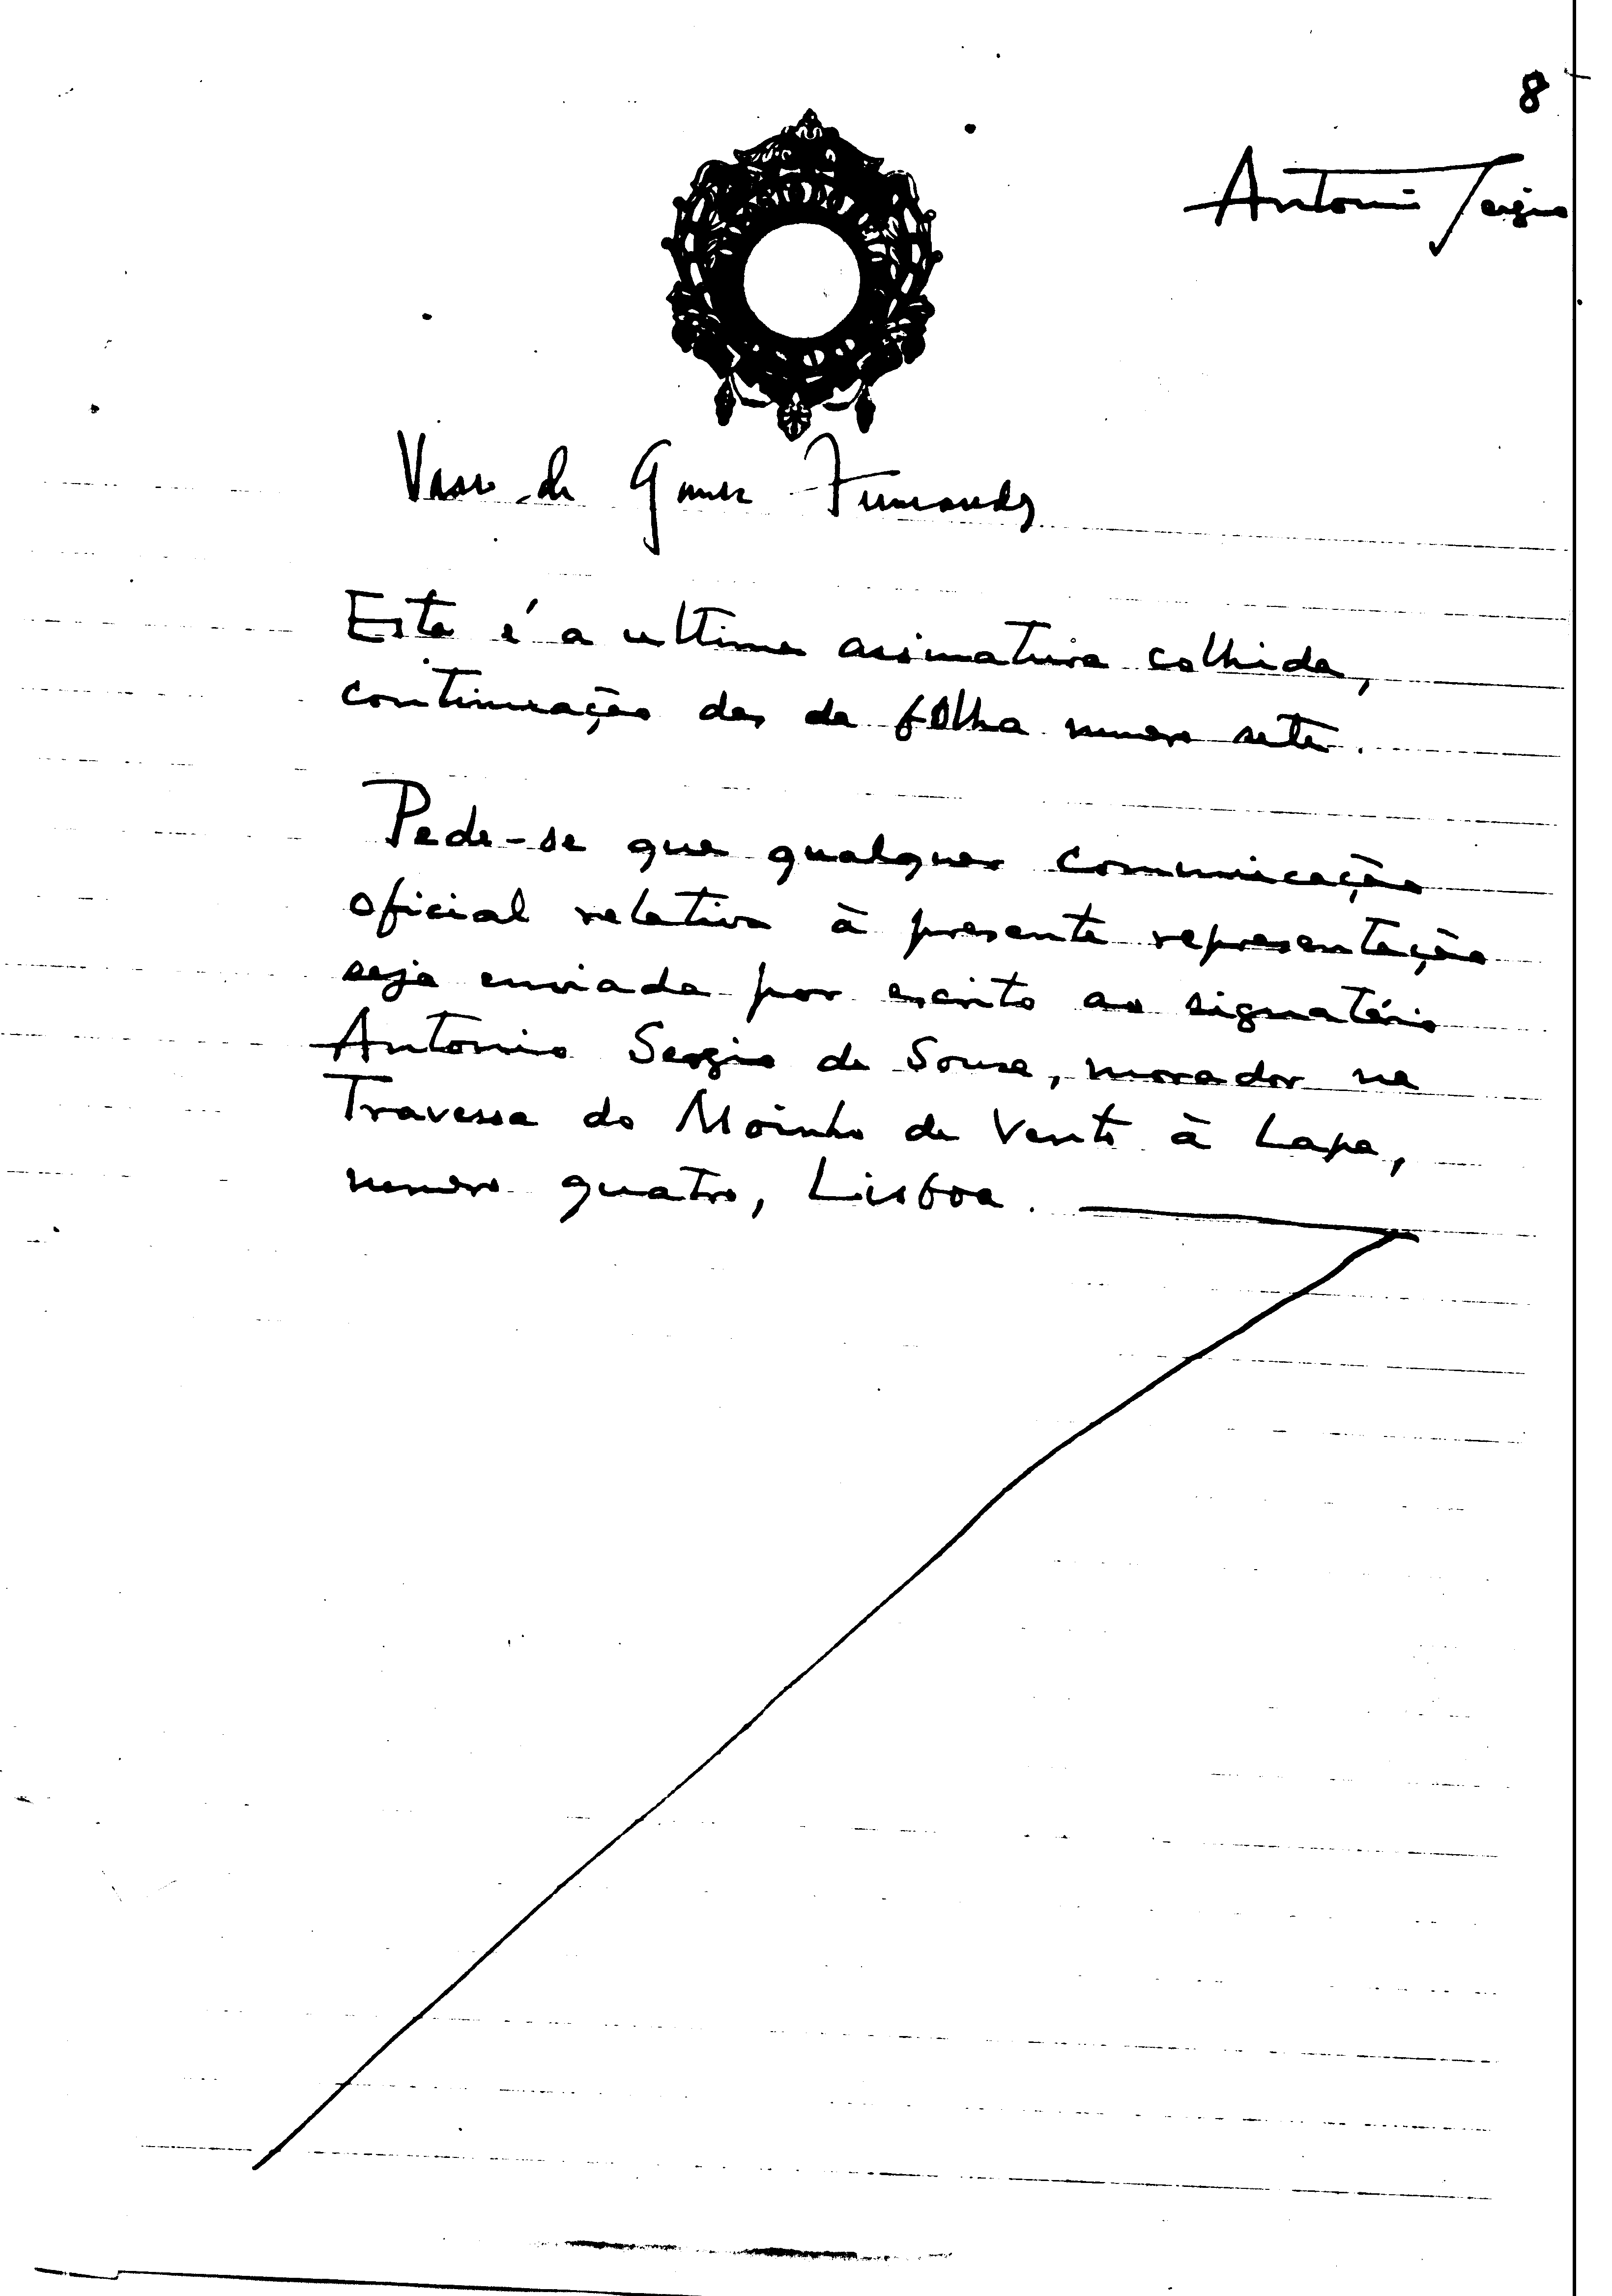 8
Antonio Sergio
Vasco da Gama Fernandes
Esta é a ultima assinatura colhida,
continuação das da folha numero sete.
Pede-se que qualquer comunicação
oficial relativa à presente representação
seja enviada por escrito ao signatário
Antonio Sergio de Sousa, morador na
Travessa do Moinho de Vento à Lapa,
numero quatro, Lisboa.